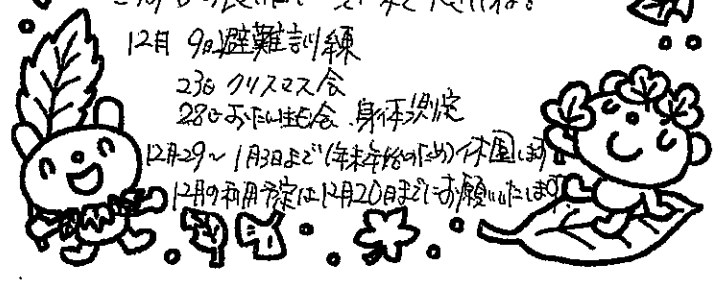 12月 9日避難訓練
23日 クリスマス会
28日おたん生会、身体測定
12月29〜1月3日まで(年末年始のため)休園します
12月の利用予定は12月20日までにお願いいたします